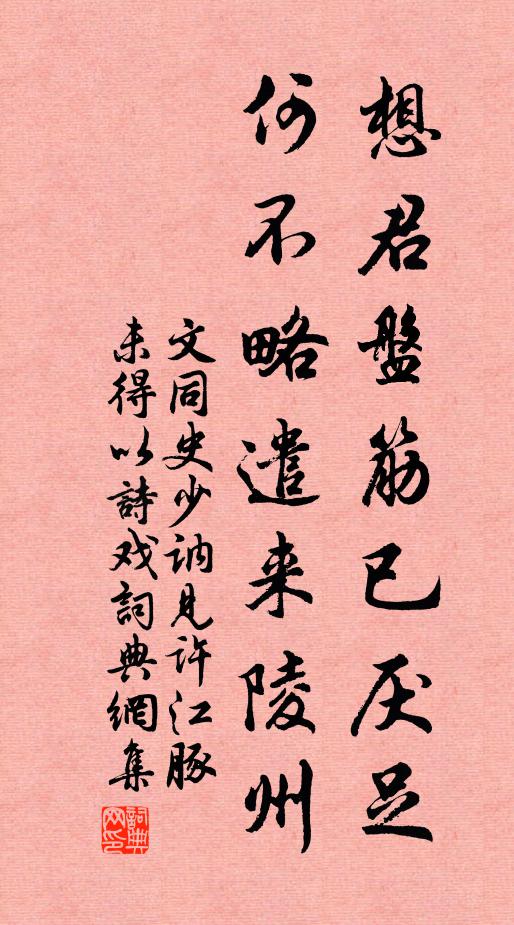 想君盤筋已厌足
何不略遣来陵州
文同史少訥見许江豚
未得以詩戏詞典網集
詞典网印